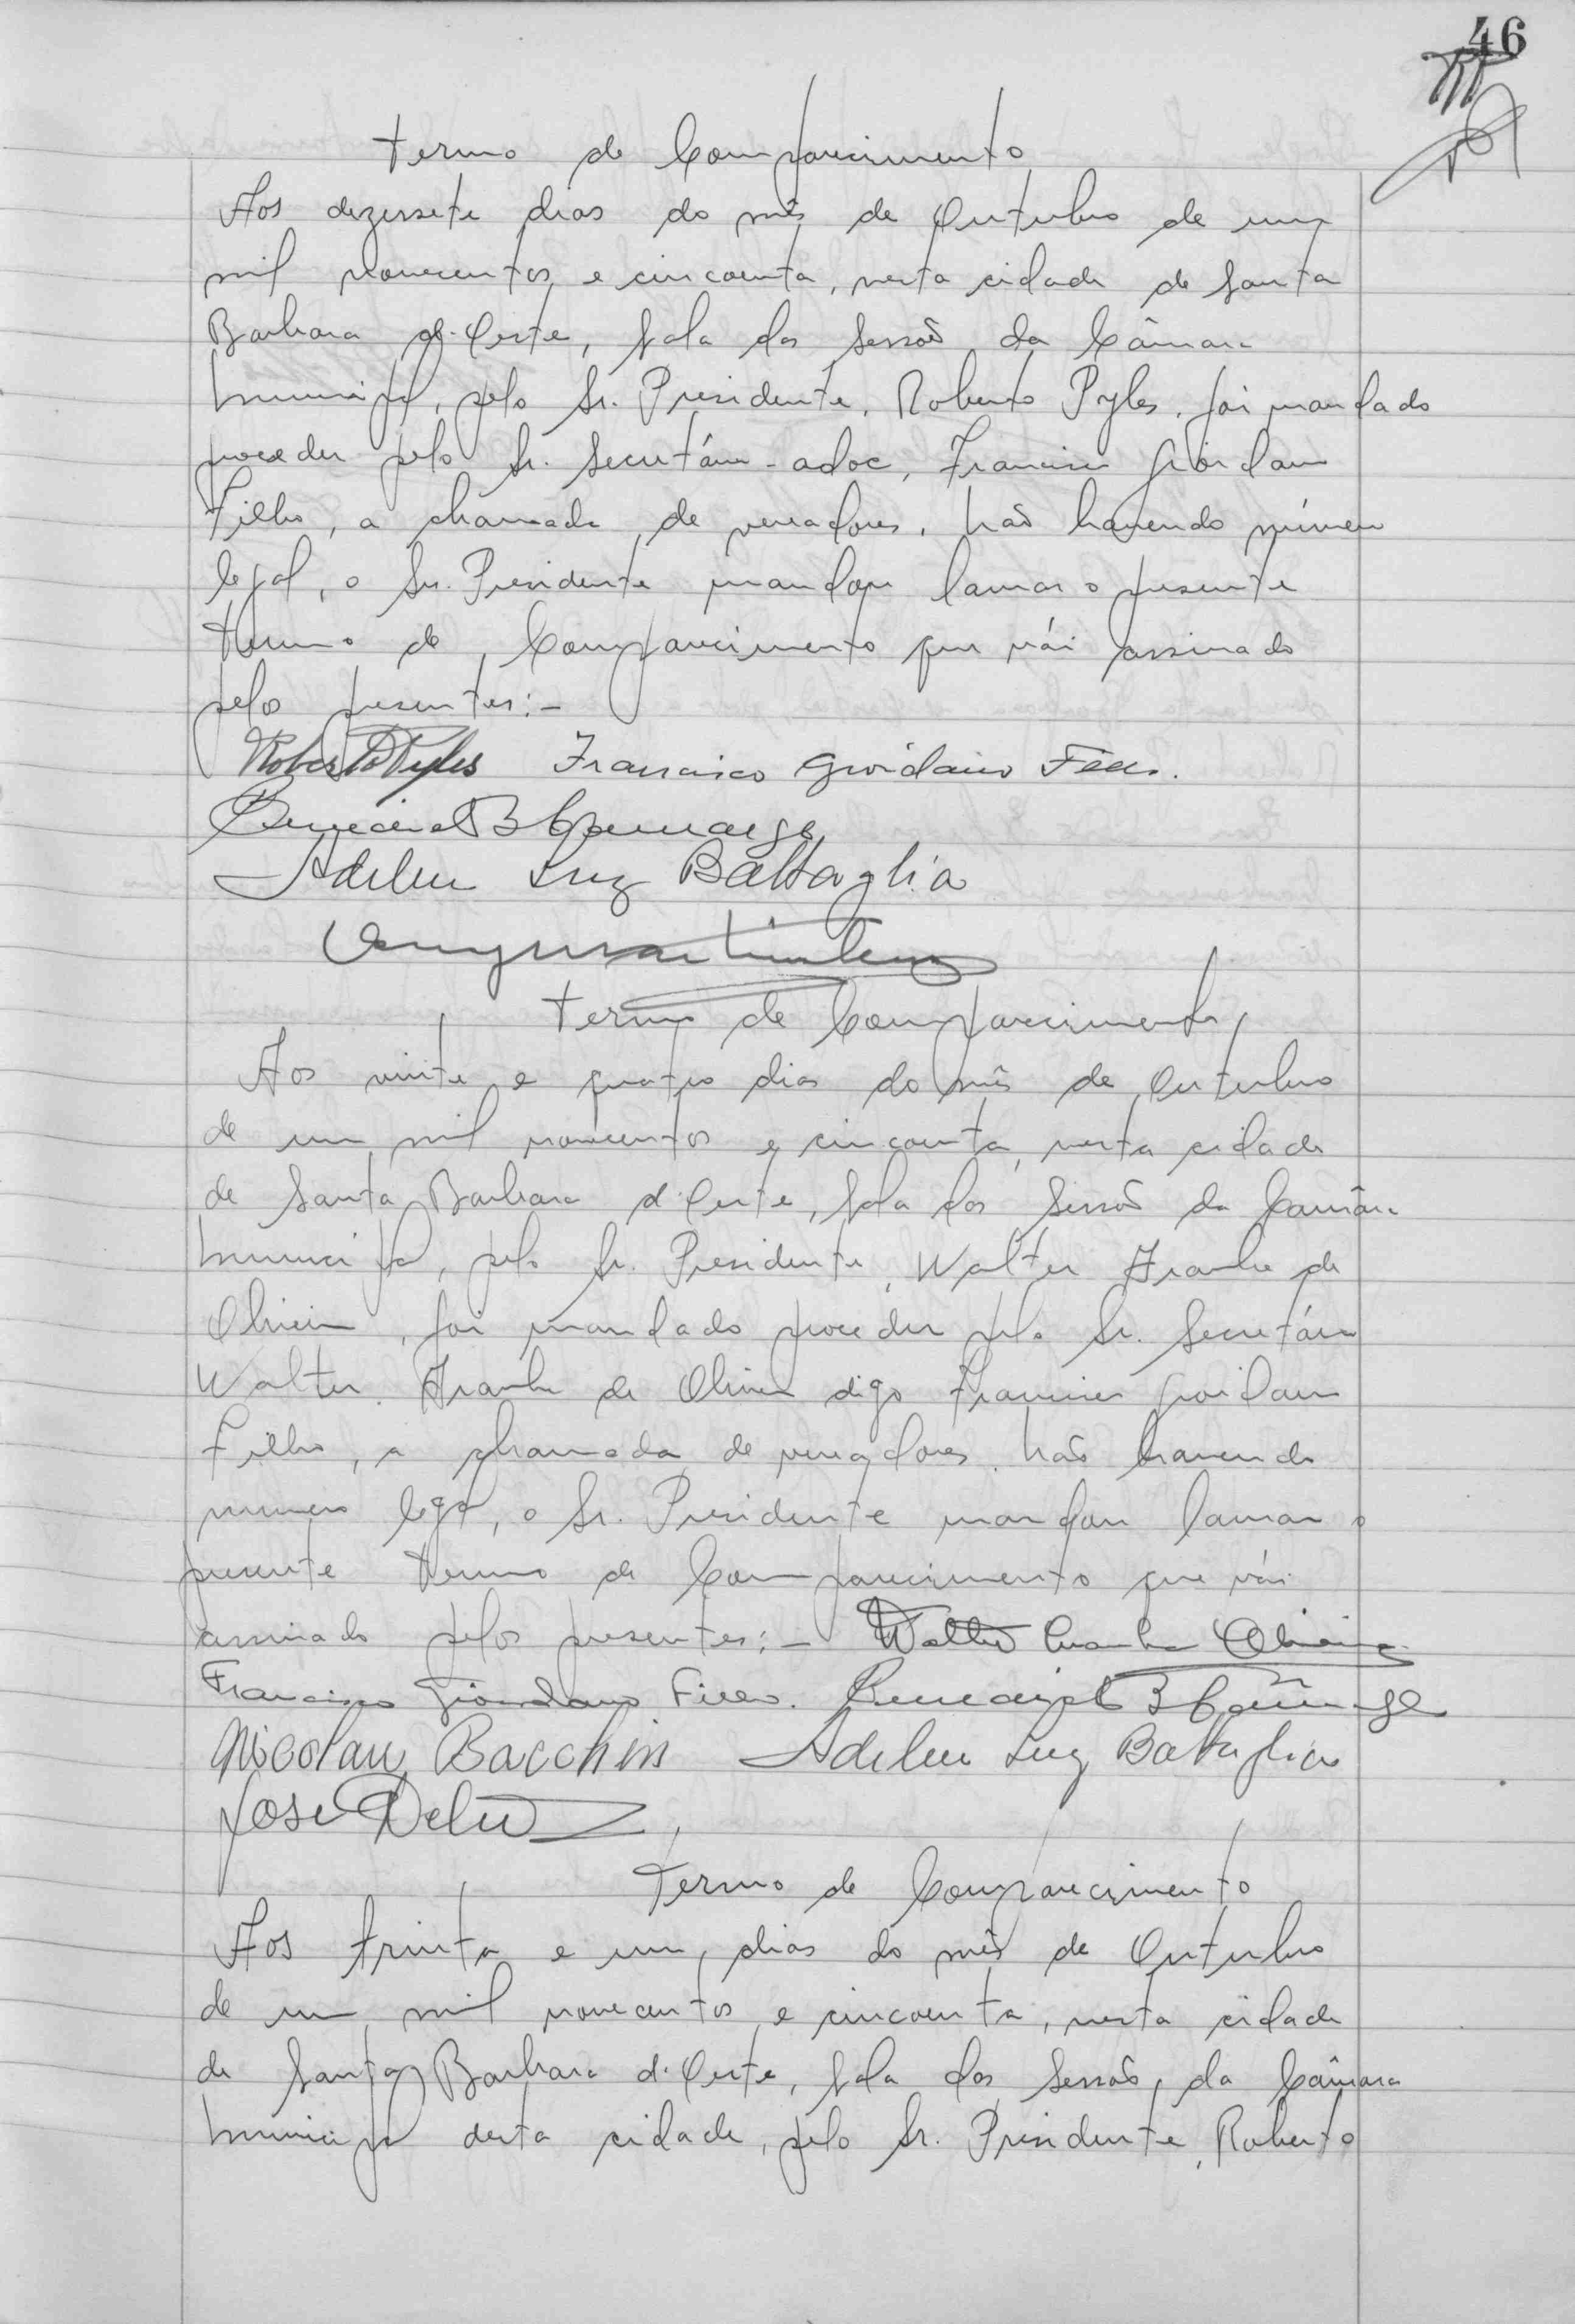 46
Termo de Comparecimento
Aos dezessete dias do mês de Outubro de um
mil novecentos e cincoenta, nesta cidade de Santa
Barbara d'Oeste, Sala das Sessões da Câmara
Municipal, pelo Sr. Presidente, Roberto Pyles, foi mandado
proceder pelo Sr. Secretário-adoc, Francisco Giordano
Filho, a chamada de vereadores. Não havendo número
legal, o Sr. Presidente mandou lavrar o presente
termo de Comparecimento que vái assinado
pelos presentes:-
Roberto Pyles Francisco Giordano Filho.
B Camargo
Luiz Battaglia
Termo de Comparecimento
Aos vinte e quatro dias do mês de Outubro
de um mil novecentos e cincoenta, nesta cidade
de Santa Barbara d'Oeste, Sala das Sessões da Camâra
Municipal, pelo Sr. Presidente, Walter de
Oliveira, foi mandado proceder pelo Sr. Secretário
Walter de Oliveira digo Francisco Giordano
Filho, a chamada de vereadores. Não havendo
numero legal, o Sr. Presidente mandou lavrar o
presente termo de Comparecimento que vái
assinado pelos presentes:- Walter Oliveira
Francisco Giordano Filho. B Camargo
Nicolau Bacchin Luiz Battaglia
José
Termo de Comparecimento
Aos trinta e um dias do mês de Outubro
de um mil novecentos e cincoenta, nesta cidade
de Santa Barbara d'Oeste, Sala das Sessões, da Câmara
Municipal desta cidade, pelo Sr. Presidente, Roberto